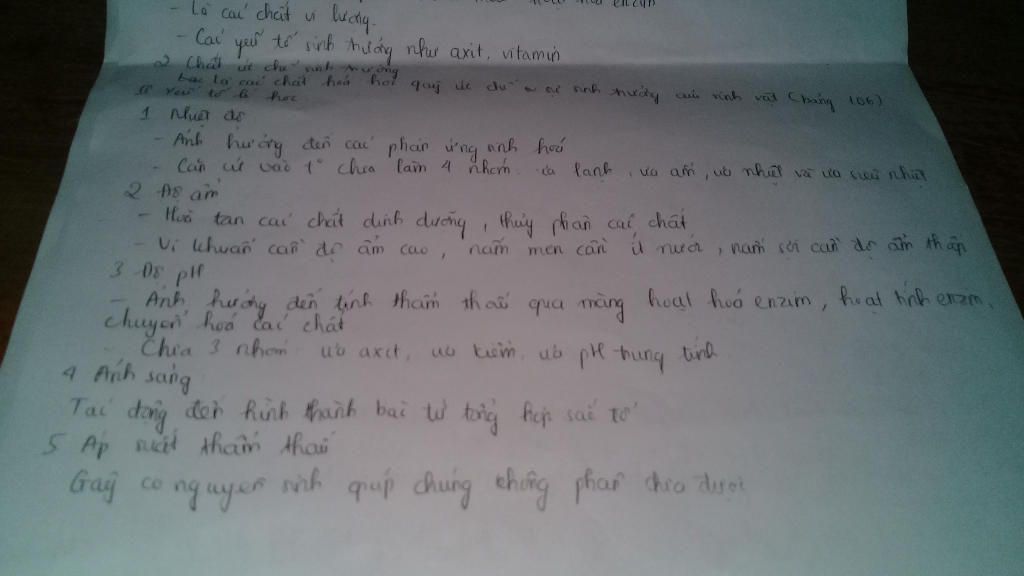 hoá enzin
- Là các chất vi lượng.
- Các yếu tố sinh trưởng như axit, vitamin
2 Chất ức chế sinh trưởng
là các chất hoá học quỹ ức chế sự sinh trưởng của sinh vật (bảng 106)
II Yếu tố lí học
1 Nhiệt độ
- Ảnh hưởng đến các phản ứng sinh hoá
- Căn cứ vào t° chia làm 4 nhóm: ưa lạnh, ưa ấm, ưa nhiệt và ưa siêu nhiệt
2 Độ ẩm
- Hoà tan các chất dinh dưỡng, thủy phân các chất
- Vi khuẩn cần độ ẩm cao, nấm men cần ít nước, nấm sợi cần độ ẩm thấp
3 Độ pH
- Ảnh hưởng đến tính thẩm thấu qua màng hoạt hoá enzim, hoạt tính enzim,
chuyển hoá các chất
- Chia 3 nhóm ưa axit, ưa kiềm, ưa pH trung tính
4 Ánh sáng
Tác động đến hình thành bào tử tổng hợp sắc tố
5 Áp suất thẩm thấu
Gây co nguyên sinh giúp chúng không phân chia được